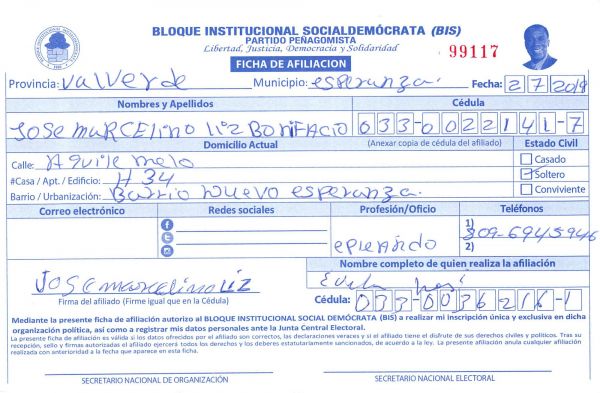 BLOQUE INSTITUCIONAL SOCIALDEMÓCRATA (BIS)
PARTIDO PEÑAGOMISTA
Libertad, Justicia, Democracia y Solidaridad
99117
FICHA DE AFILIACION
Provincia: Valverde Municipio: esperanza. Fecha: 2 7 2019
Nombres y Apellidos Cédula
JOSE MARCELINO LIZ BONIFACIO 033-0022141-7
Domicilio Actual (Anexar copia de cédula del afiliado) Estado Civil
Calle: Aquile melo Casado
#Casa / Apt. / Edificio: # 34 Soltero
Barrio / Urbanización: Barrio nuevo esperanza. Conviviente
Correo electrónico Redes sociales Profesión/Oficio Teléfonos
1) 809-6945946
epleaido 2)
Nombre completo de quien realiza la afiliación
JOSE marcelino LIZ
Firma del afiliado (Firme igual que en la Cédula) Cédula: 033-0036216-1
Mediante la presente ficha de afiliación autorizo al BLOQUE INSTITUCIONAL SOCIAL DEMÓCRATA (BIS) a realizar mi inscripción única y exclusiva en dicha
organización política, así como a registrar mis datos personales ante la Junta Central Electoral.
La presente ficha de afiliación es válida si los datos ofrecidos por el afiliado son correctos, las declaraciones veraces y si el afiliado tiene el disfrute de sus derechos civiles y políticos. Tras su
recepción, sello y firmas autorizadas el afiliado ejercerá todos los derechos y los deberes estatutariamente sancionados, de acuerdo a la ley. La presente afiliación anula cualquier afiliación
realizada con anterioridad a la fecha que aparece en esta ficha.
SECRETARIO NACIONAL DE ORGANIZACIÓN SECRETARIO NACIONAL ELECTORAL